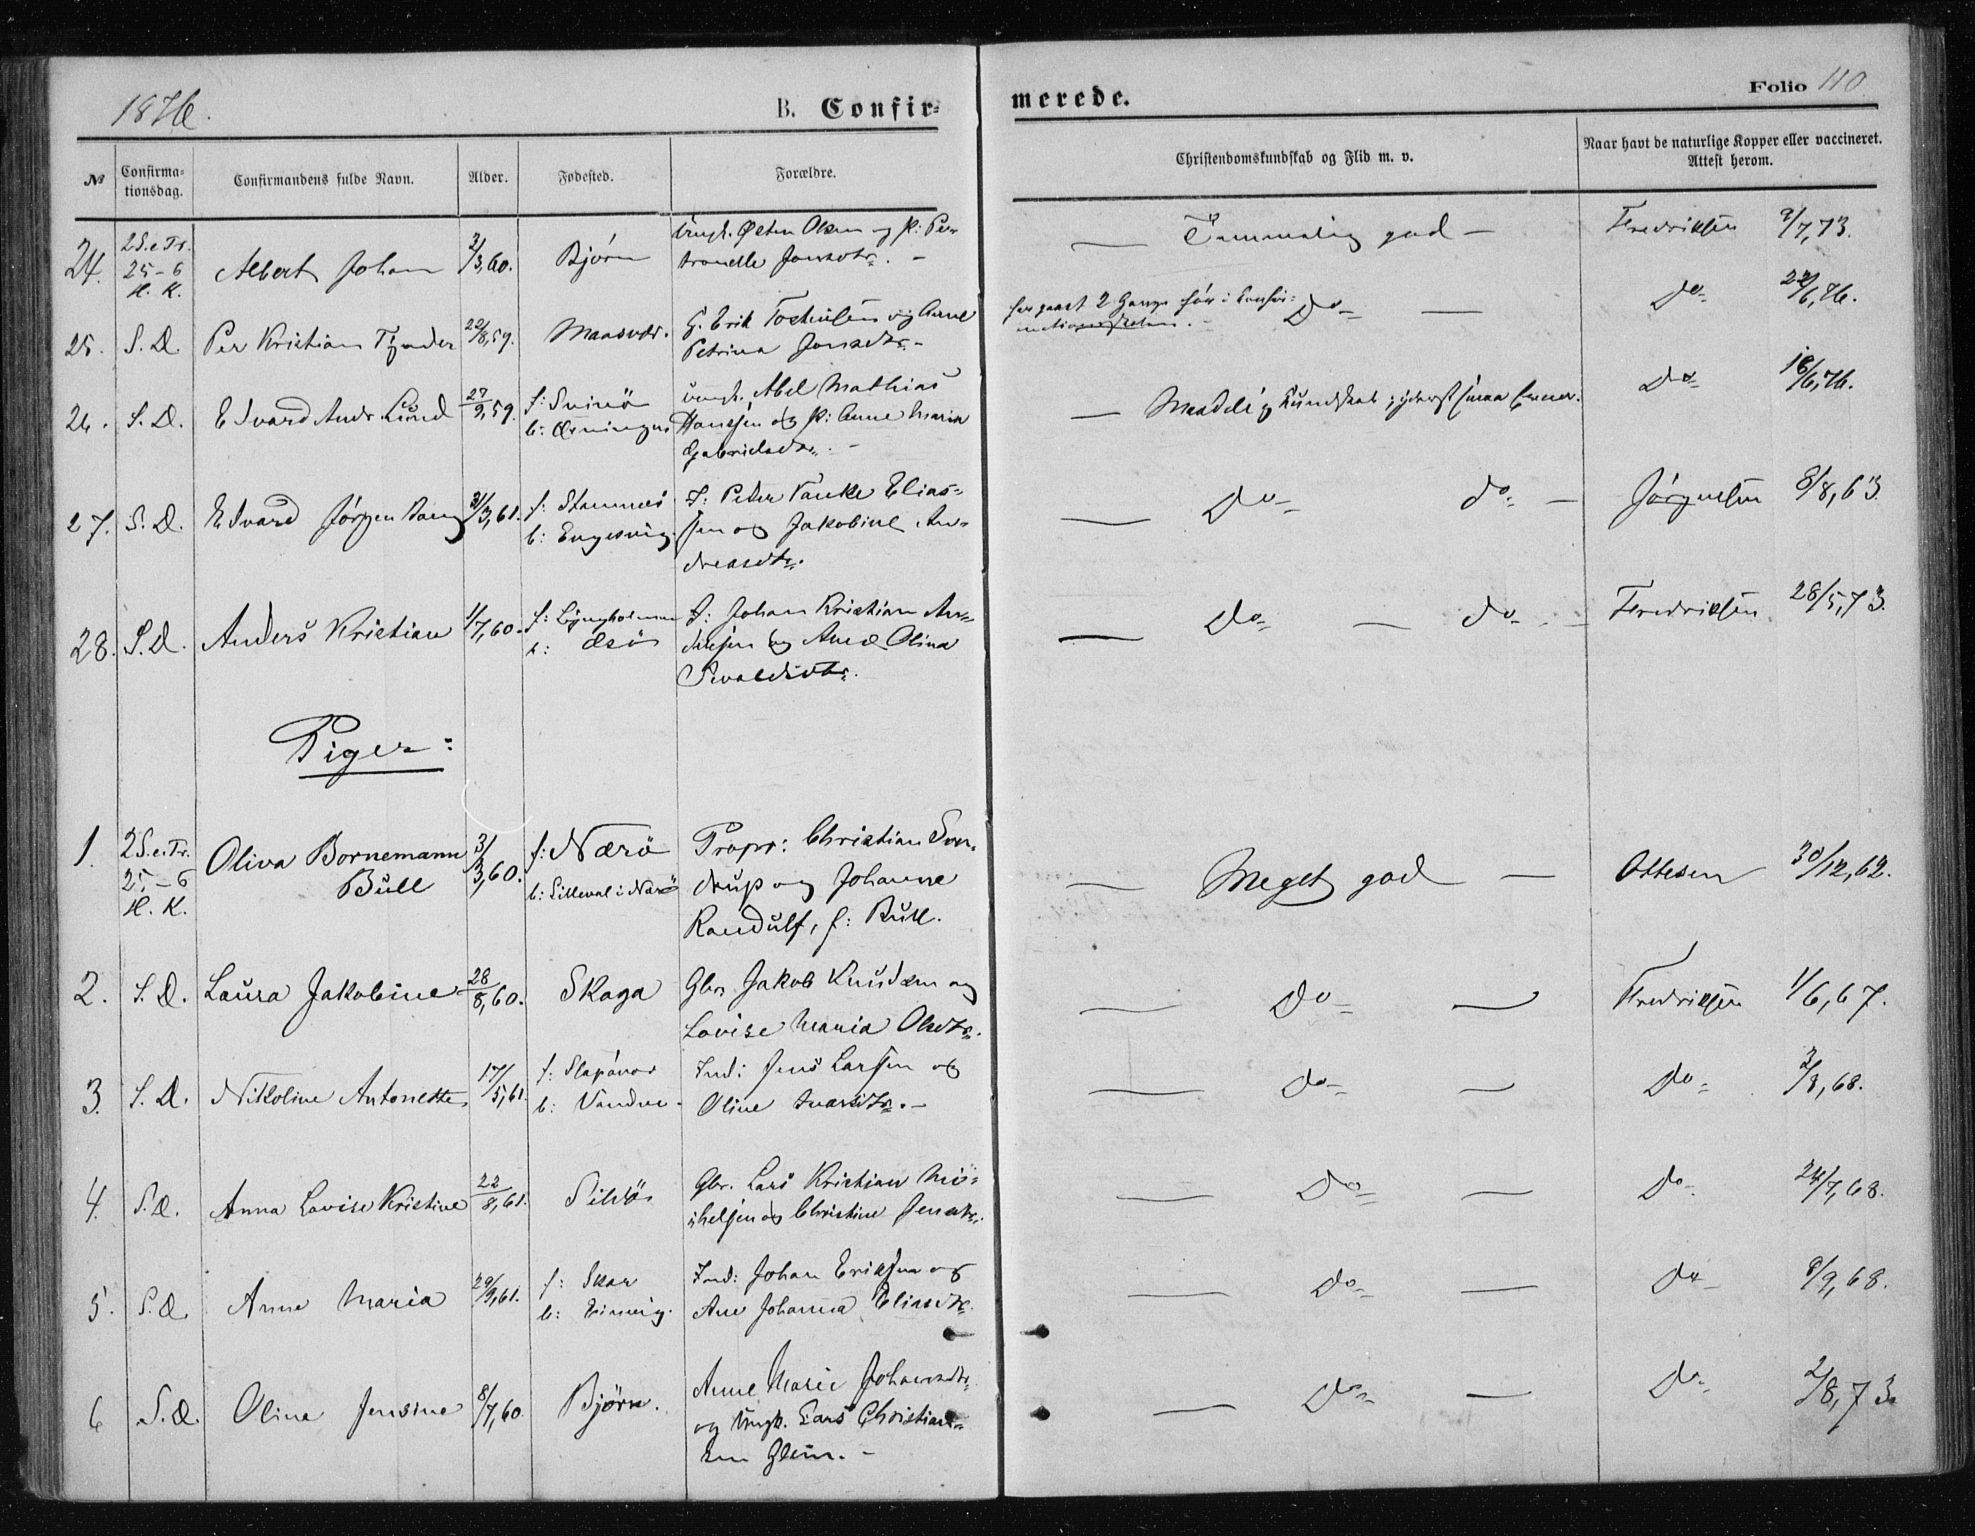 1876.
B. Confir-
merede.
Folio 110
№
Confirma-
tionsdag.
Confirmandens fulde Navn.
Alder.
Fødested.
Forældre.
Christendomskundskab og Flid m. v.
Naar havt de naturlige Kopper eller vaccineret.
Attest herom.
24. 2 S. e. Tr. 25-6 H. K. Albert Johan 2/3,60. Bjørn
Ungk. Østen Olsen og P: Pe-
tronelle Jonsdtr. —
— Temmelig god — Fredriksen 9/7,73.
25. S. D. Per Kristian Tjunder 22/8,59. Maasvær.
G. Erik og Anne
Petrina Jonsdtr. —
2 Gange før i Confir-
Do — Do 22/6,76.
26. S. D. Edvard Andr. Lund 27/9,59. f: Svinö
b:
ungk. Abel Mathias
Hansen og P: Anne Maria
Gabrielsdtr. —
— Maadelig Kundskab; yderst smaa Evner. Do 16/6,76.
27. S. D. Edvard Jørgen 31/3,61. f: Stamnes
b: Engesvig.
I: Peder Tanke Elias-
sen og Jakobine An-
dreasdtr.
— Do do — Jørgensen 8/8,63.
28. S. D. Anders Kristian 1/7,60. f: Lyngholmen
b:
I: Johan Kristian An-
dersen og Ane Olina
Sivaldsdtr.
— Do — do — Fredriksen 28/5,73.
Piger:
1. 2 S. e. Tr. 25-6 H. K. Oliva Bornemann
Bull 3/3,60. f: Nærö
b: Silleval i Nærö
Propr: Christian
og Johanne
Randulf, f: Bull.
— Meget god — Ottesen 30/12,62.
2. S. D. Laura Jakobine 28/8,60. Skaga
Gbr. Jakob Knudsen og
Lovise Maria Olsdtr.
— Do — Fredriksen 1/6,67.
3. S. D. Nikoline Antonette 17/5,61. f: Slapövær
b: Vandve.
Ind: Jens Larsen og
Oline Ivarsdtr. —
— Do — Do 2/8,68.
4. S. D. Anna Lovise Kristine 22/8,61. Sildö
Gbr. Lars Kristian Mi-
chelsen og Christine Jensdtr.
— Do — Do 24/7,68.
5. S. D. Anne Maria 29/9,61. f: Skar
b: Einvig.
Ind: Johan Eriksen og
Ane Johanna Eliasdtr.
— Do — Do 8/9,68.
6 S. D. Oline Jensine 8/7,60. Bjørn.
Anne Marie Johansdtr.
og Ungk. Lars Christian-
sen Glein. —
— Do — Do 2/8,73.